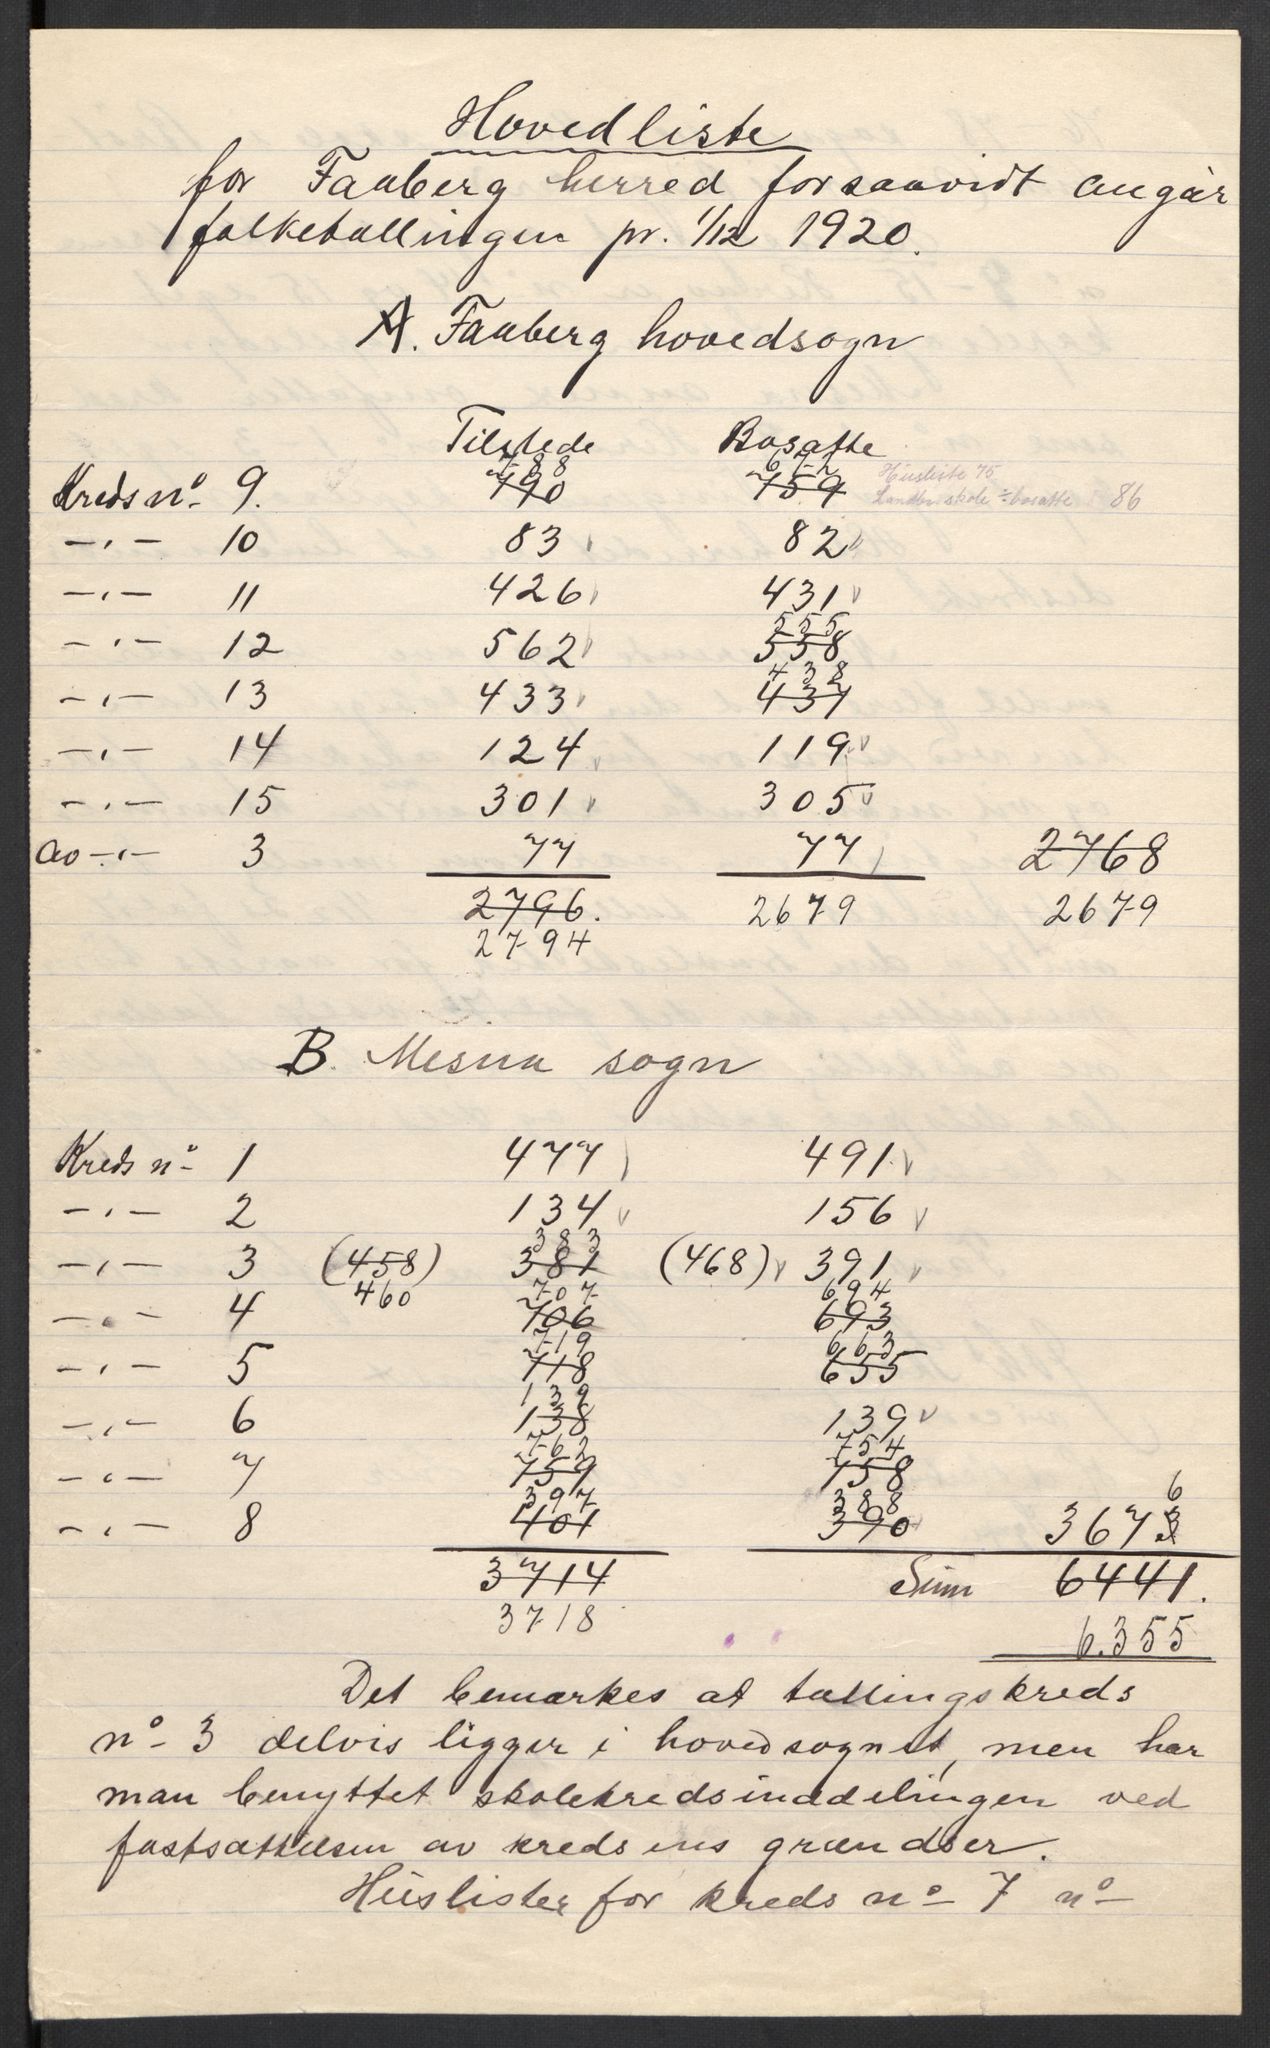 Hovedliste
for Faaberg herred forsaavidt angår
folketællingen pr. 1/12 1920.
A. Faaberg hovedsogn
Tilstede Bosatte
788 672
Kreds nº 9. 790 759 Husliste 75
Landbr. skole ÷ bosatte 86
-"- 10 83 82
-"- 11 426 431
555
-"- 12 562 558
438
-"- 13 433 437
-"- 14 124 119
-"- 15 301 305
av -"- 3 77 77 2768
2796. 2679 2679
2794
B. Mesna sogn
Kreds nº 1 477 491
-"- 2 134 156
383
-"- 3 (458) 381 (468) 391
460 707 694
-"- 4 706 693
719 663
-"- 5 718 655
139
-"- 6 138 139
762 754
-"- 7 759 758
397 388 6
-"- 8 401 390 3673
3714 Sum 6441.
3718 6.355
Det bemærkes at tællingskreds
nº 3 delvis ligger i hovedsognet, men har
man benyttet skolekredsinddelingen ved
fastsættelsen av kredsens grændser.
Huslister for kreds nº 7 nº